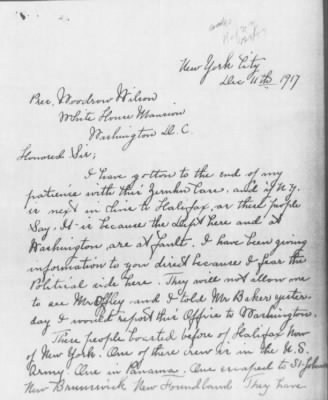 New York City
Dec 11th 1917
Pre. Woodrow Wilson
White House Mansion
Washington D.C.
Honored Sir;
I have gotton to the end of my
patience with this Case, and if N.Y.
is next in line to Halifax, as these people
say. It is because the Dept here and at
Washington are at fault. I have been giving
information to you direct because I fear the
Political side here. They will not allow me
to see Mr Offley and I told Mr Baker yester-
day I would report this Office to Washington.
These people boasted before of Halifax Now
of New York. One of there crew is in the U.S.
Army. One in Panama. One escaped to St Johns
New Brunswick New Foundland. They have